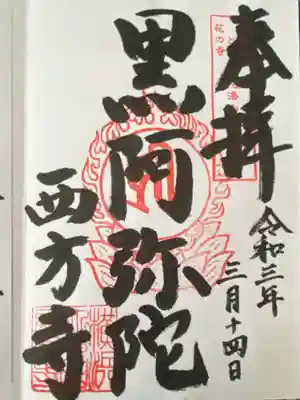 奉拝
花の寺
令和三年
三月十四日
黒阿弥陀
西方寺